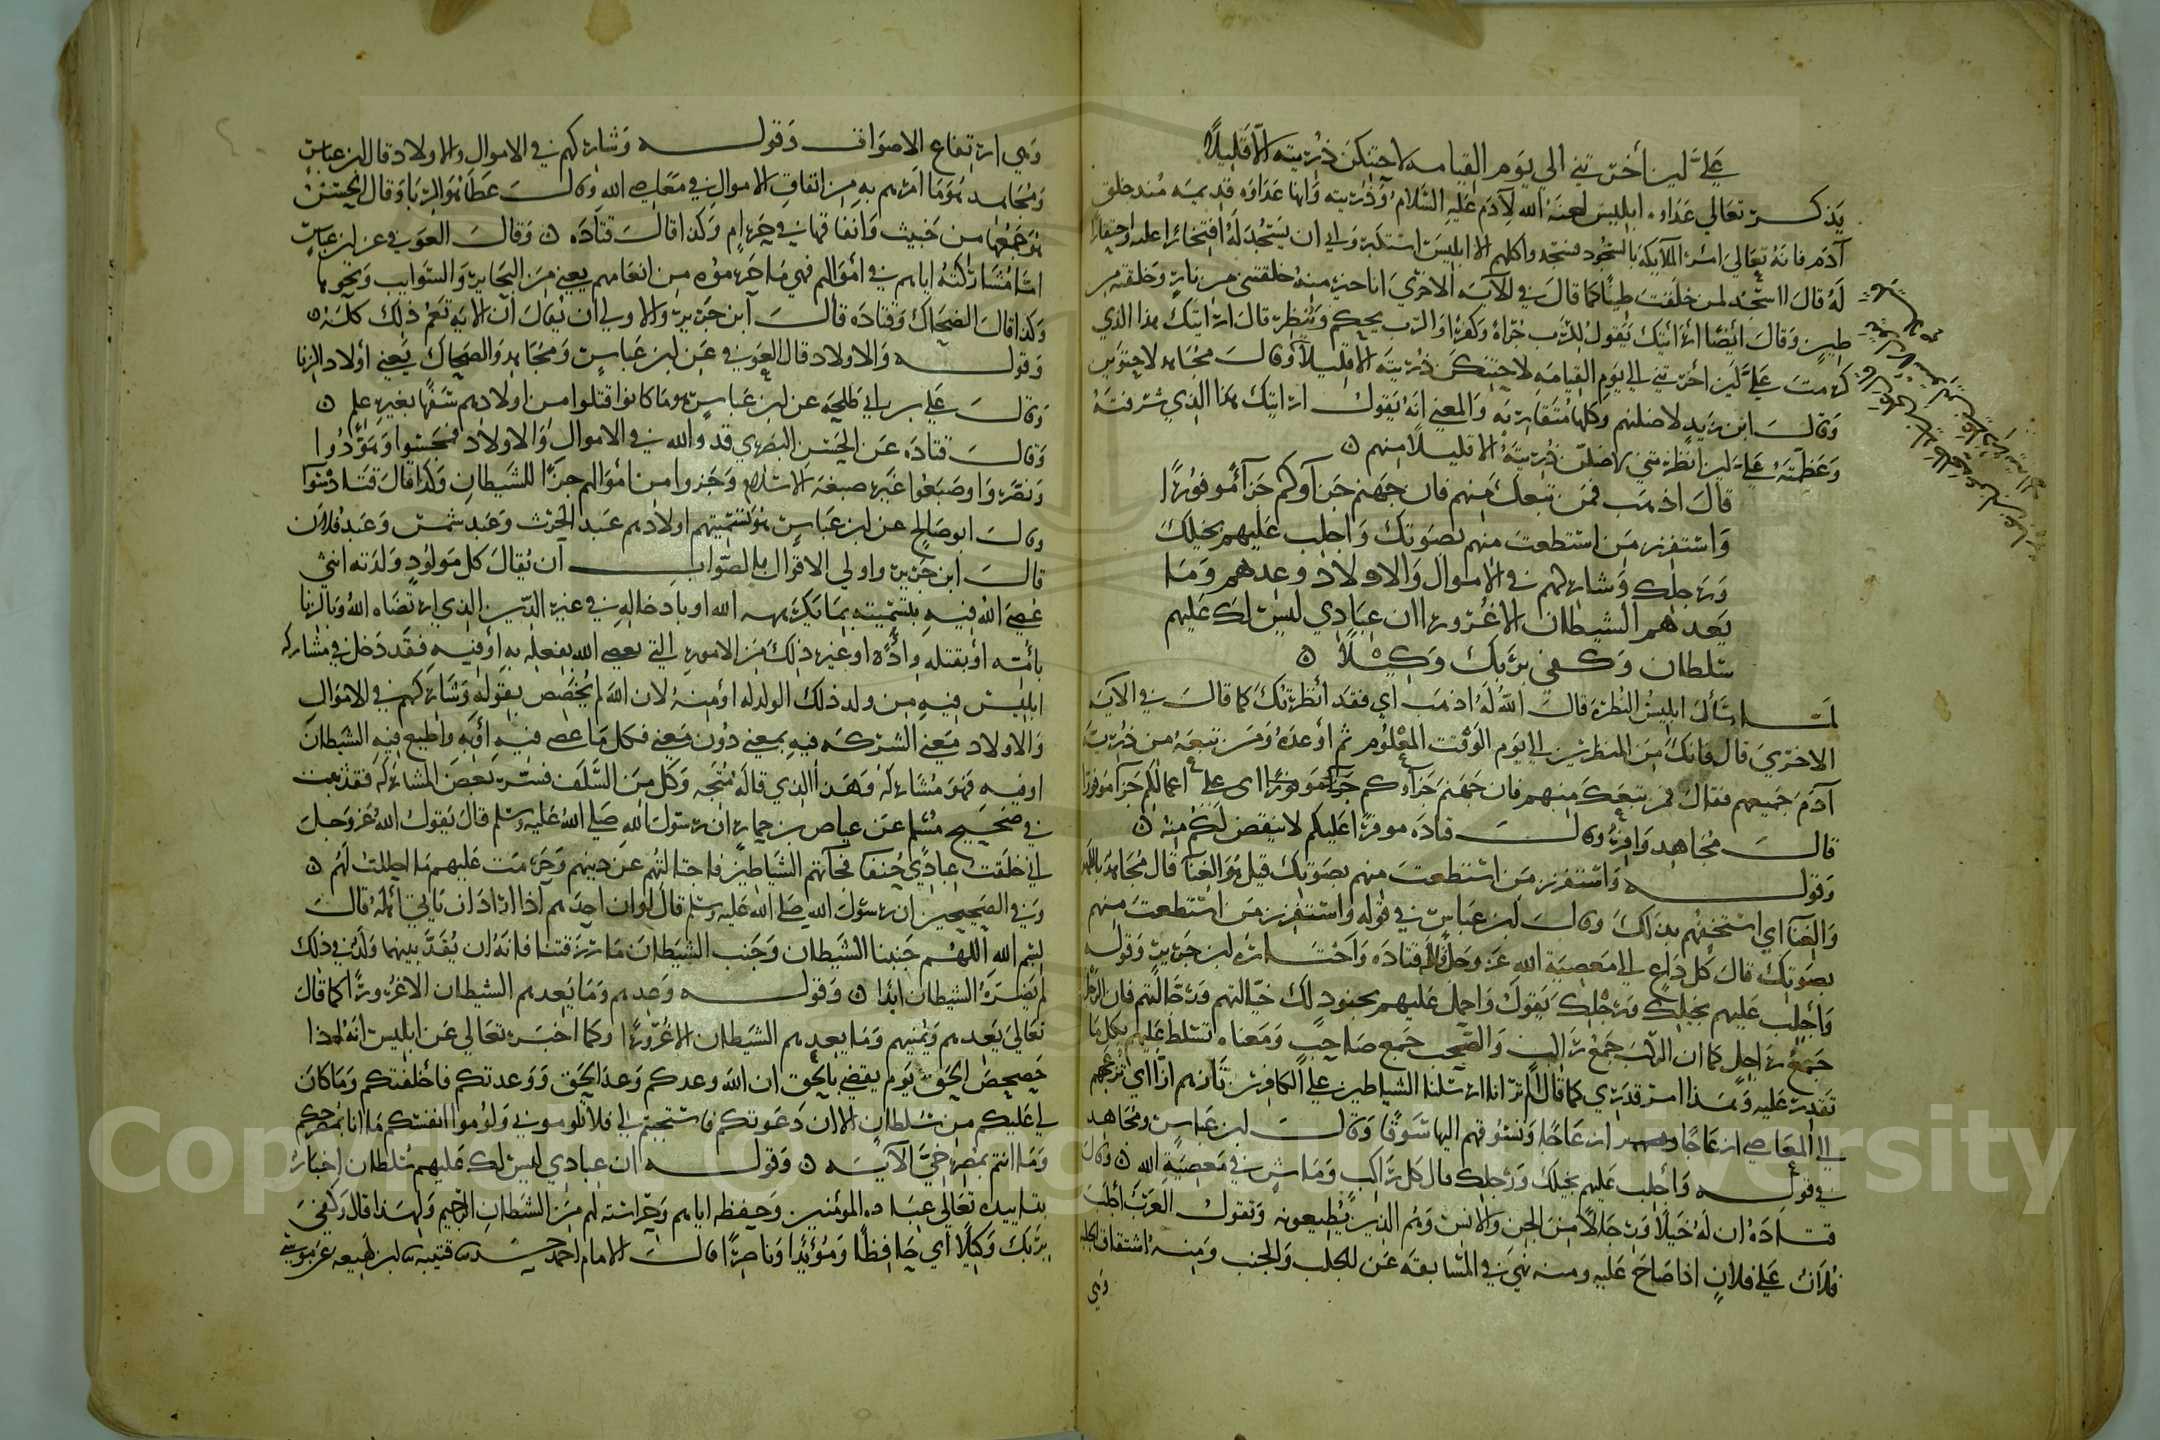 عليّ لين أخرتني الي يوم القيامه لاحتنكن ذريته الا قليلا
يذكر تعالي عداوه ابليس لعنه الله لادم عليه السلام وذريته وانها عداوه قديمه منذ خلق
آدم فانه تعالي امر الملايكه بالسجود فسجدوا كلهم الا ابليس استكبر وابي ان يسجد له افتخارا عليه واحتقارا
له قال ااسجد لمن خلقت طينا كما قال في الآيه الاخري انا خير منه خلقتني من نار وخلقته من
طين وقال أيضا ارايتك يقول للرب جراه وكفرا والرب يحلم وينظر قال ارايتك هذا الذي
كرمت علي لين أخرتني الي يوم القيامه لاحتنكن ذريته الا قليلا وقال مجاهد لاحتوين
وقال ابن زيد لاضلنهم وكلها متقاربه والمعني انه يقول ارايتك هذا الذي شرفته
وعظمته علي لين انظرتني لاضلن ذريته الا قليلا منهم ٥
قال اذهب فمن تبعك منهم فان جهنم جزآوكم جزآ موفورا
واستفزز من استطعت منهم بصوتك واجلب عليهم بخيلك
ورجلك وشاركهم في الاموال والاولاد وعدهم وما
يعدهم الشيطان الا غرورا ان عبادي ليس لك عليهم
سلطان وكفي بربك وكيلا ٥
لما سأل ابليس النظرة قال الله له اذهب اي فقد أنظرتك كما قال في الآيه
الاخري قال فانك من المنظرين الي يوم الوقت المعلوم ثم أوعده ومن تبعه من ذريه
آدم جهنم فقال فمن تبعك منهم فان جهنم جزآوكم جزآ موفورا اي علي اعمالكم جزآ موفورا
قال مجاهد وافرا وقال قتاده موفرا عليكم لا ينقص لكم منه ٥
وقوله واستفزز من استطعت منهم بصوتك قيل هو الغنآ قال مجاهد باللهو
والغنآ اي استخفهم بذلك وقال ابن عباس في قوله واستفزز من استطعت منهم
بصوتك قال كل داع الي معصية الله عز وجل وقاله قتاده واختاره ابن جرير وقوله
وأجلب عليهم بخيلك ورجلك يقول واحمل عليهم بجنودك خيالتهم ورجالتهم فان الرجل
جمع راجل كما ان الركب جمع راكب والصحب جمع صاحب ومعناه تسلط عليهم بكل ما
تقدر عليه وهذا امر قدري كما قال الم تر انا ارسلنا الشياطين علي الكافرين تأزهم أزا اي تزعجهم
الي المعاصي ازعاجا وتسوقهم اليها سوقا وقال ابن عباس ومجاهد
في قوله وأجلب عليهم بخيلك ورجلك قال كل راكب وماش في معصية الله ٥ وقال
قتاده ان له خيلا ورجالا من الجن والانس وهم الذين يطيعونه وتقول العرب أجلب
فلان علي فلان اذا صاح عليه ومنه نهي في المسابقه عن الجلب والجنب ومنه اشتقاق الجلبه
وهي
وهي ارتفاع الاصوات وقوله وشاركهم في الاموال والاولاد قال ابن عباس
ومجاهد هو ما امرهم به من انفاق الاموال في معاصي الله وقال عطا هو الربا وقال الحسن
هو جمعها من خبيث وانفاقها في حرام وكذا قال قتاده ٥ وقال العوفي عن ابن عباس
اما مشاركته اياهم في أموالهم فهي ما حرموه من انعامهم يعني من البحاير والسوايب ونحوها
وكذا قال الضحاك وقتاده قال ابن جرير والاولي ان يقال ان الايه تعم ذلك كله ٥
وقوله والاولاد قال العوفي عن ابن عباس ومجاهد والضحاك يعني أولاد الزنا
وقال علي بن ابي طلحه عن ابن عباس هو ما كانوا قتلوا من اولادهم سفها بغير علم ٥
وقال قتاده عن الحسن البصري قد والله في الاموال والاولاد فمجسوا وهودوا
ونصروا وصبغوا غير صبغه الاسلام وجزوا من أموالهم جزءا للشيطان وكذا قال قتاده سوآ
وقال ابو صالح عن ابن عباس هو تسميتهم اولادهم عبد الحرث وعبد شمس وعبد فلان
قال ابن جرير واولي الاقوال بالصواب ان يقال كل مولود ولدته انثي
عصي الله فيه بتسميته بما يكرهه الله او بادخاله في غير الدين الذي ارتضاه الله وبالزنا
بأمه أو بقتله وأده او غير ذلك من الامور التي يعصي الله بفعله به أو فيه فقد دخل في مشاركه
ابليس فيه من ولد ذلك الولد له أو منه لان الله لم يخصص بقوله وشاركهم في الاموال
والاولاد معني الشركه فيه بمعني دون معني فكل ما عصي فيه أو به واطيع فيه الشيطان
او به فهو مشاركه وهذا الذي قاله متجه وكل من السلف فسر بعض المشاركه فقد ثبت
في صحيح مسلم عن عياض بن حمار ان رسول الله صلي الله عليه وسلم قال يقول الله عز وجل
اني خلقت عبادي حنفا فجآتهم الشياطين فاجتالتهم عن دينهم وحرمت عليهم ما احللت لهم ٥
وفي الصحيحين ان رسول الله صلي الله عليه وسلم قال لو ان احدهم اذا اراد ان ياتي أهله قال
بسم الله اللهم جنبنا الشيطان وجنب الشيطان ما رزقتنا فانه ان يقدر بينهما ولد في ذلك
لم يضره الشيطان ابدا ٥ وقوله وعدهم وما يعدهم الشيطان الا غرورا كما قال
تعالي يعدهم ويمنيهم وما يعدهم الشيطان الا غرورا وكما اخبر تعالي عن ابليس انه اذا
حصحص الحق يوم يقضي بالحق ان الله وعدكم وعد الحق ووعدتكم فأخلفتكم وما كان
لي عليكم من سلطان الا ان دعوتكم فاستجبتم لي فلا تلوموني ولوموا انفسكم ما انا بمصرخكم
وما انتم بمصرخي الآيه ٥ وقوله ان عبادي ليس لك عليهم سلطان اخبار
بتاييده تعالي عباده المؤمنين وحفظه اياهم وحراسته لهم من الشيطان الرجيم ولهذا قال وكفي
بربك وكيلا أي حافظا ومؤيدا وناصرا قال الامام احمد قتيبه ابن لهيعه عن موسي
Copyright © King Saud University